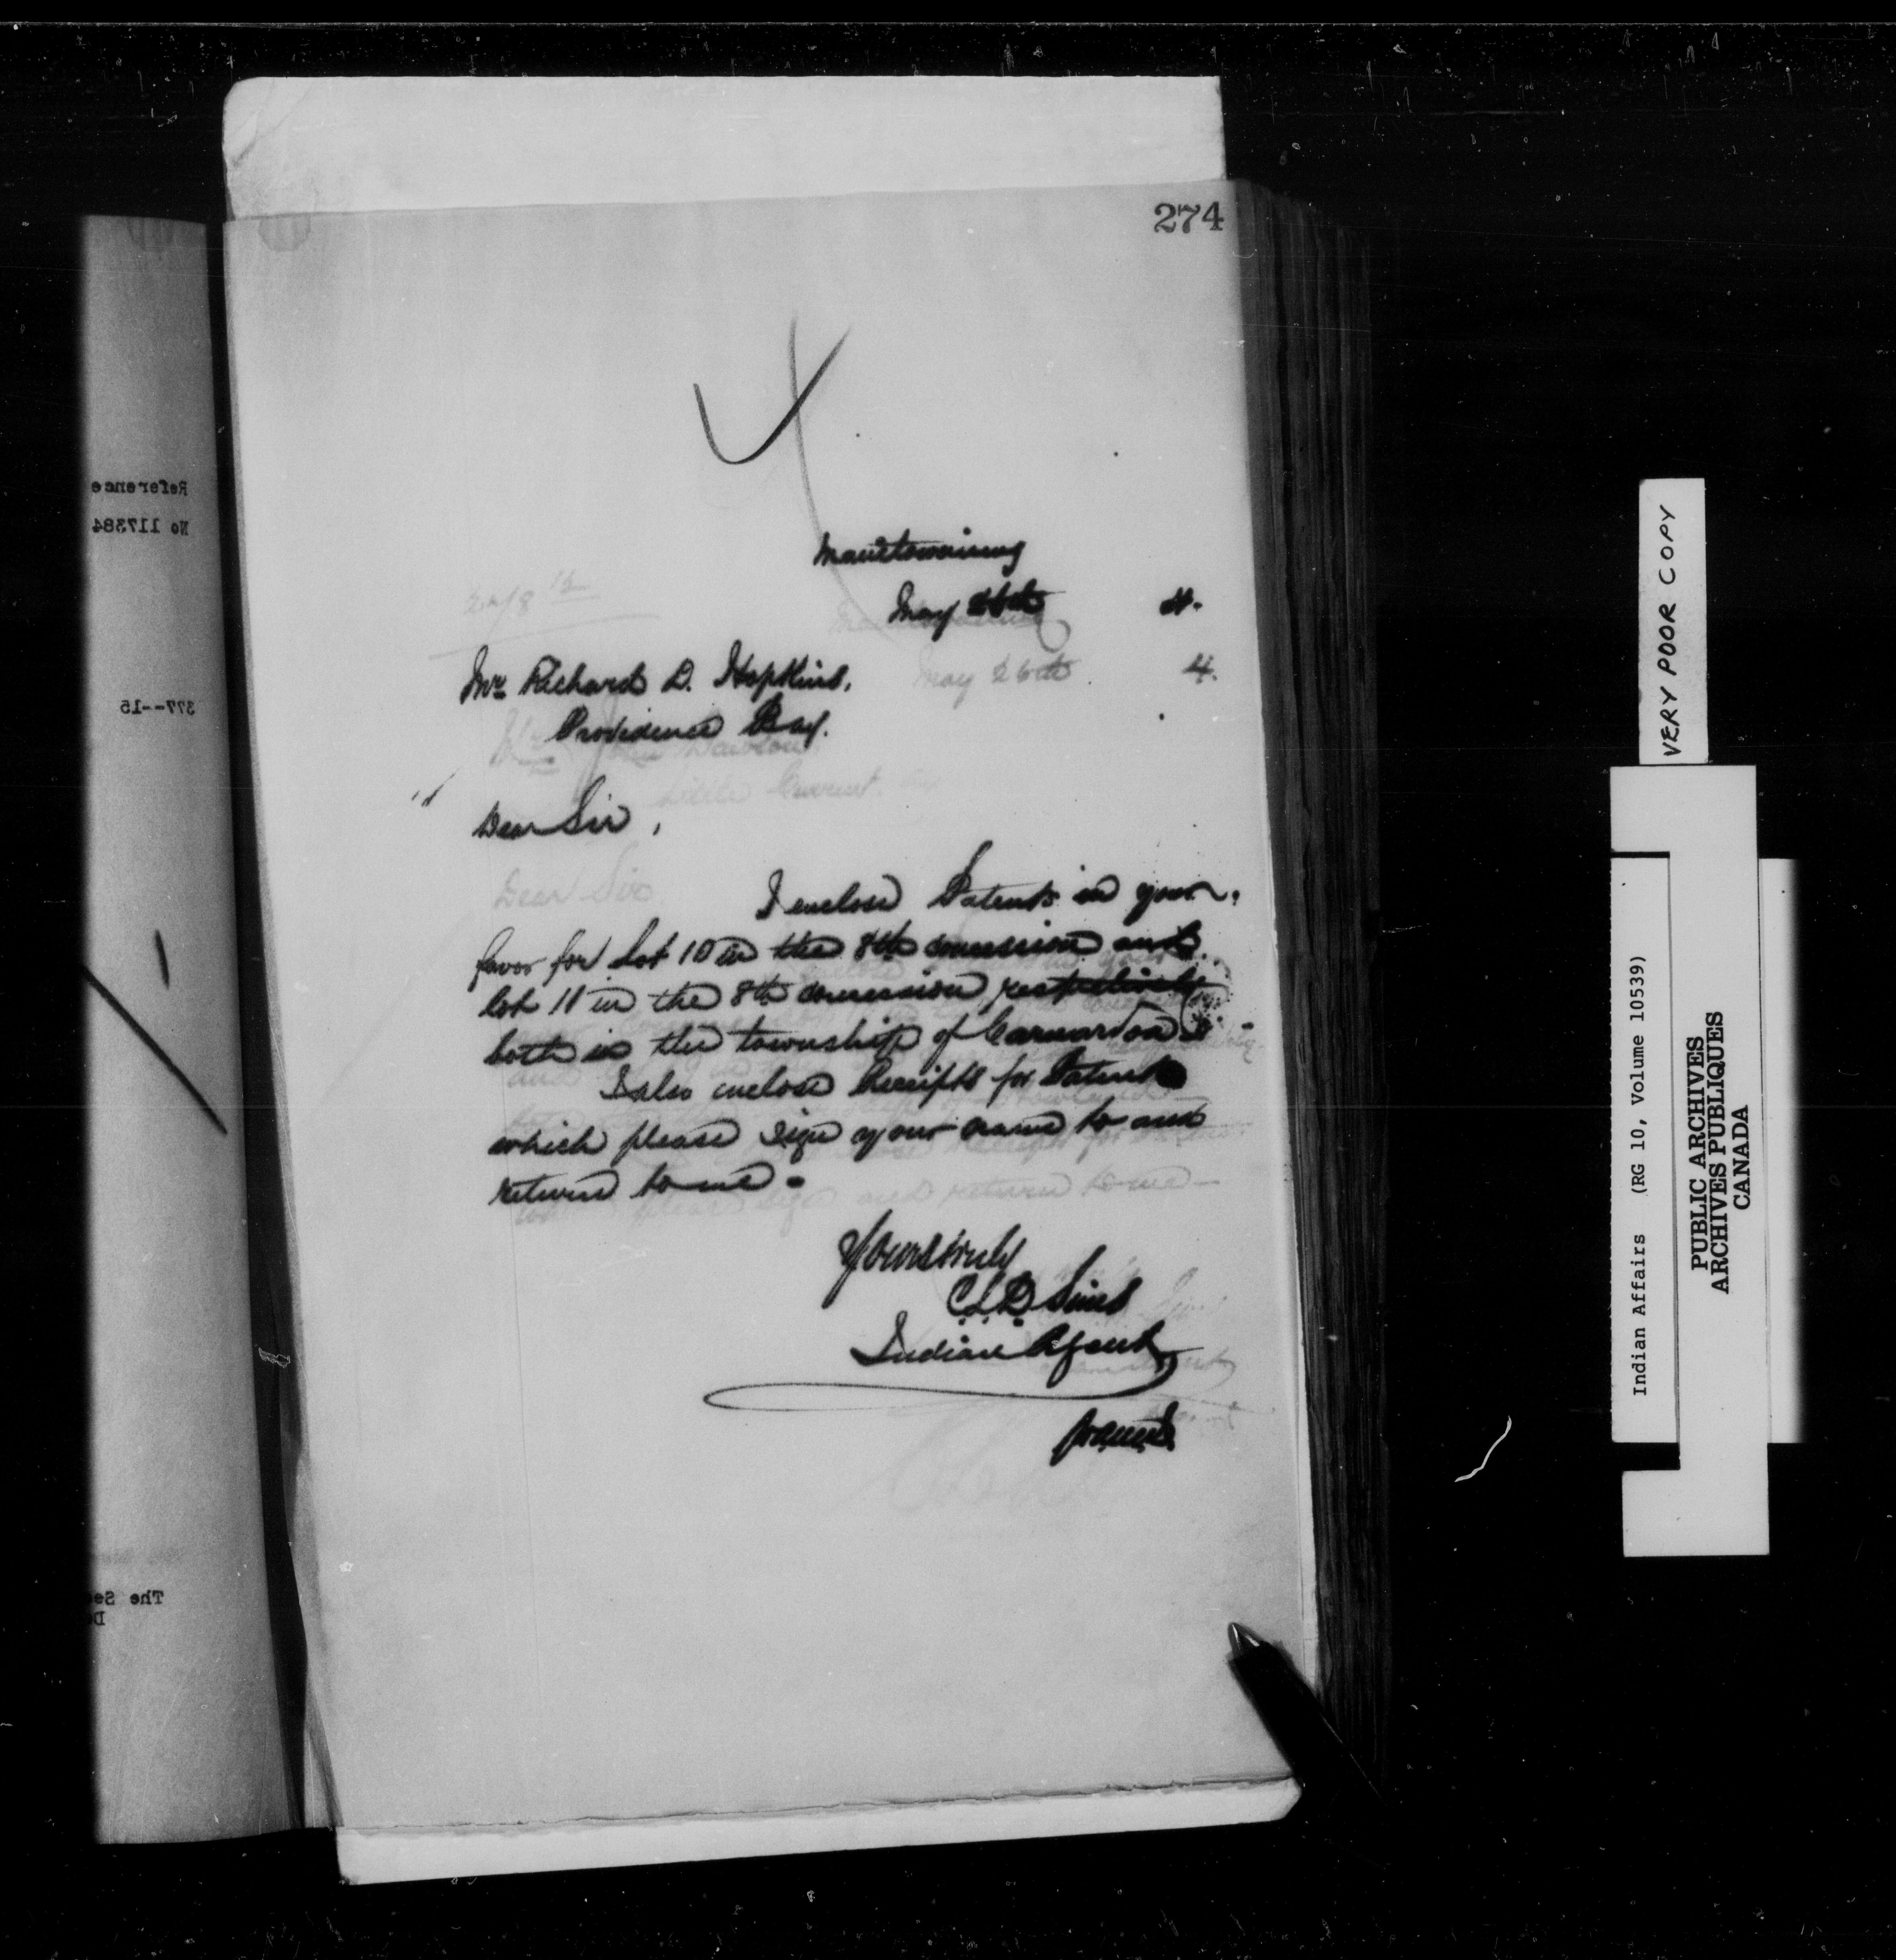 274
Manitowaning
May 26th 4.
Mr Richard D. Hopkins,
Providence Bay.
Dear Sir,
I enclose Patents in your
favor for Lot 10 in the 8th concession and
lot 11 in the 8th concession respectively
both in the township of Carnarvon
I also enclose Receipts for Patents
which please sign your name to and
return to me -
Yours truly
C.L.D. Sims
Indian Agent
May 26th 4.
Little Current.
Dear Sir
sign and return to me -
Reference
No 117384
377--15
The Se
D
VERY POOR COPY
Indian Affairs (RG 10, Volume 10539)
PUBLIC ARCHIVES
ARCHIVES PUBLIQUES
CANADA